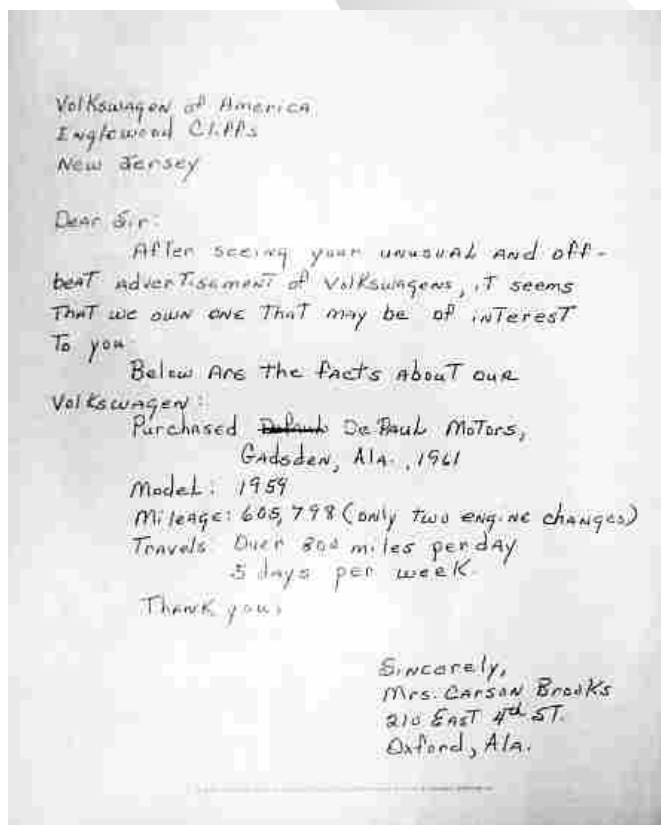 Volkswagen of America
Englewood Cliffs
New Jersey
Dear Sir:
After seeing your unusual and off-
beat advertisement of Volkswagens, it seems
that we own one that may be of interest
to you.
Below are the facts about our
Volkswagen:
Purchased DePaul Motors,
Gadsden, Ala., 1961
Model: 1959
Mileage: 605,798 (only two engine changes)
Travels Over 300 miles per day
5 days per week.
Thank you,
Sincerely,
Mrs. Carson Brooks
210 East 4th St.
Oxford, Ala.